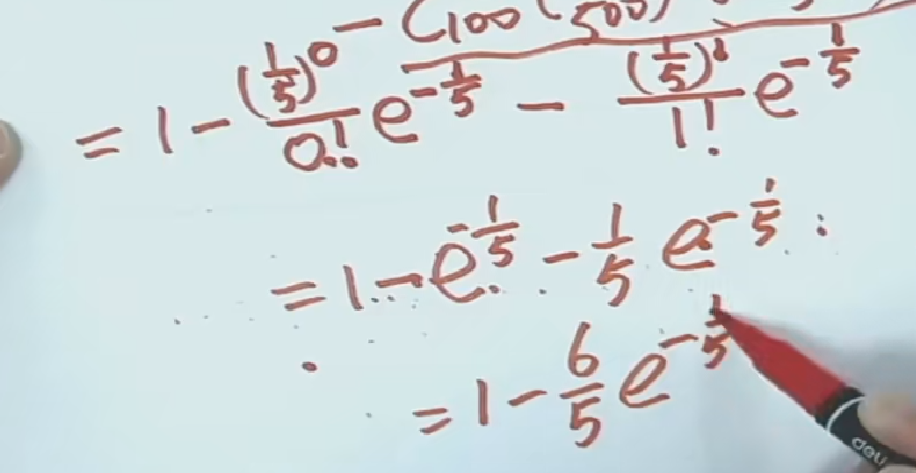 - C100 (1/500)
= 1 - (1/5)^0/0! e^(-1/5) - (1/5)^1/1! e^(-1/5)
= 1 - e^(-1/5) - 1/5 e^(-1/5)
= 1 - 6/5 e^(-1/5)
deli